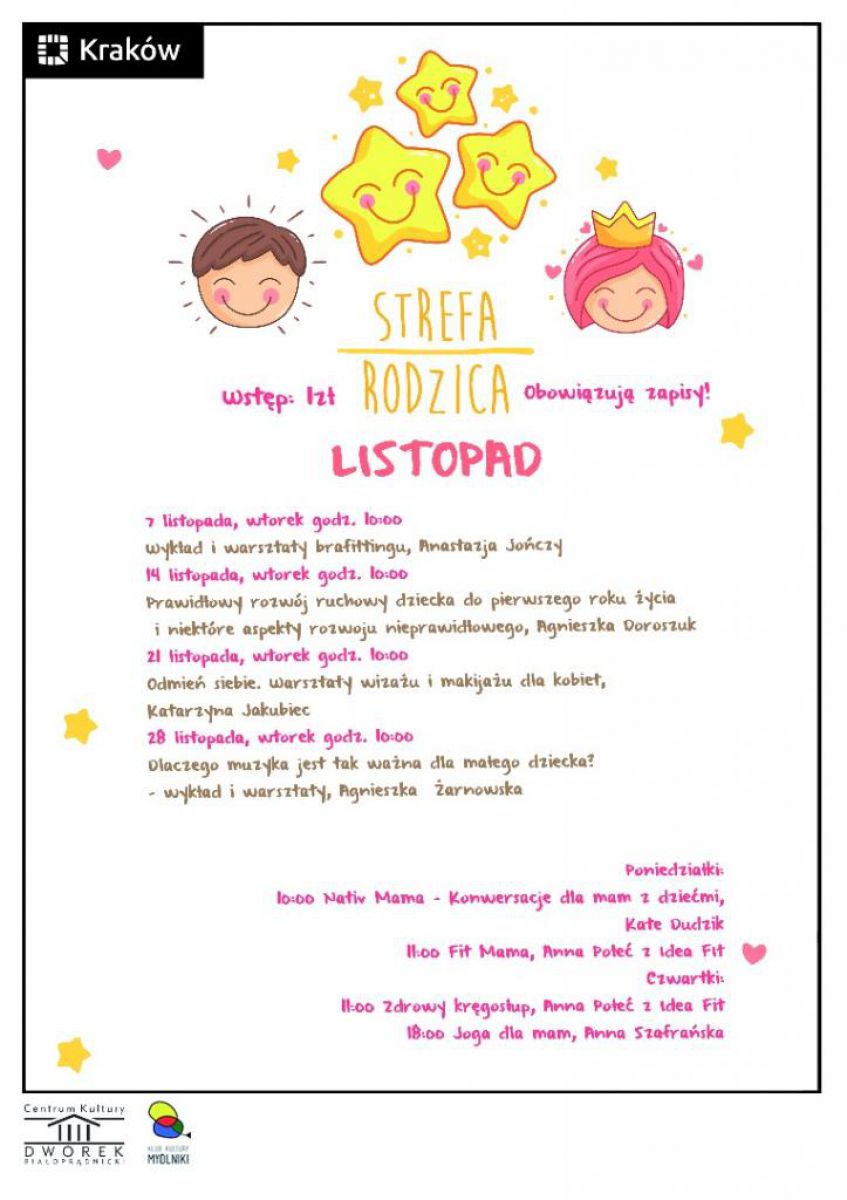 Kraków
STREFA
RODZICA
Wstęp: 1zł
Obowiązują zapisy!
LISTOPAD
7 listopada, wtorek godz. 10:00
Wykład i warsztaty brafittingu, Anastazja Jończy
14 listopada, wtorek godz. 10:00
Prawidłowy rozwój ruchowy dziecka do pierwszego roku życia
i niektóre aspekty rozwoju nieprawidłowego, Agnieszka Doroszuk
21 listopada, wtorek godz. 10:00
Odmień siebie. Warsztaty wizażu i makijażu dla kobiet,
Katarzyna Jakubiec
28 listopada, wtorek godz. 10:00
Dlaczego muzyka jest tak ważna dla małego dziecka?
- wykład i warsztaty, Agnieszka Żarnowska
Poniedziałki:
10:00 Nativ Mama - Konwersacje dla mam z dziećmi,
Kate Dudzik
11:00 Fit Mama, Anna Połeć z Idea Fit
Czwartki:
11:00 Zdrowy kręgosłup, Anna Połeć z Idea Fit
18:00 Joga dla mam, Anna Szafrańska
Centrum Kultury
DWOREK
BIAŁOPRĄDNICKI
KLUB KULTURY
MYDLNIKI